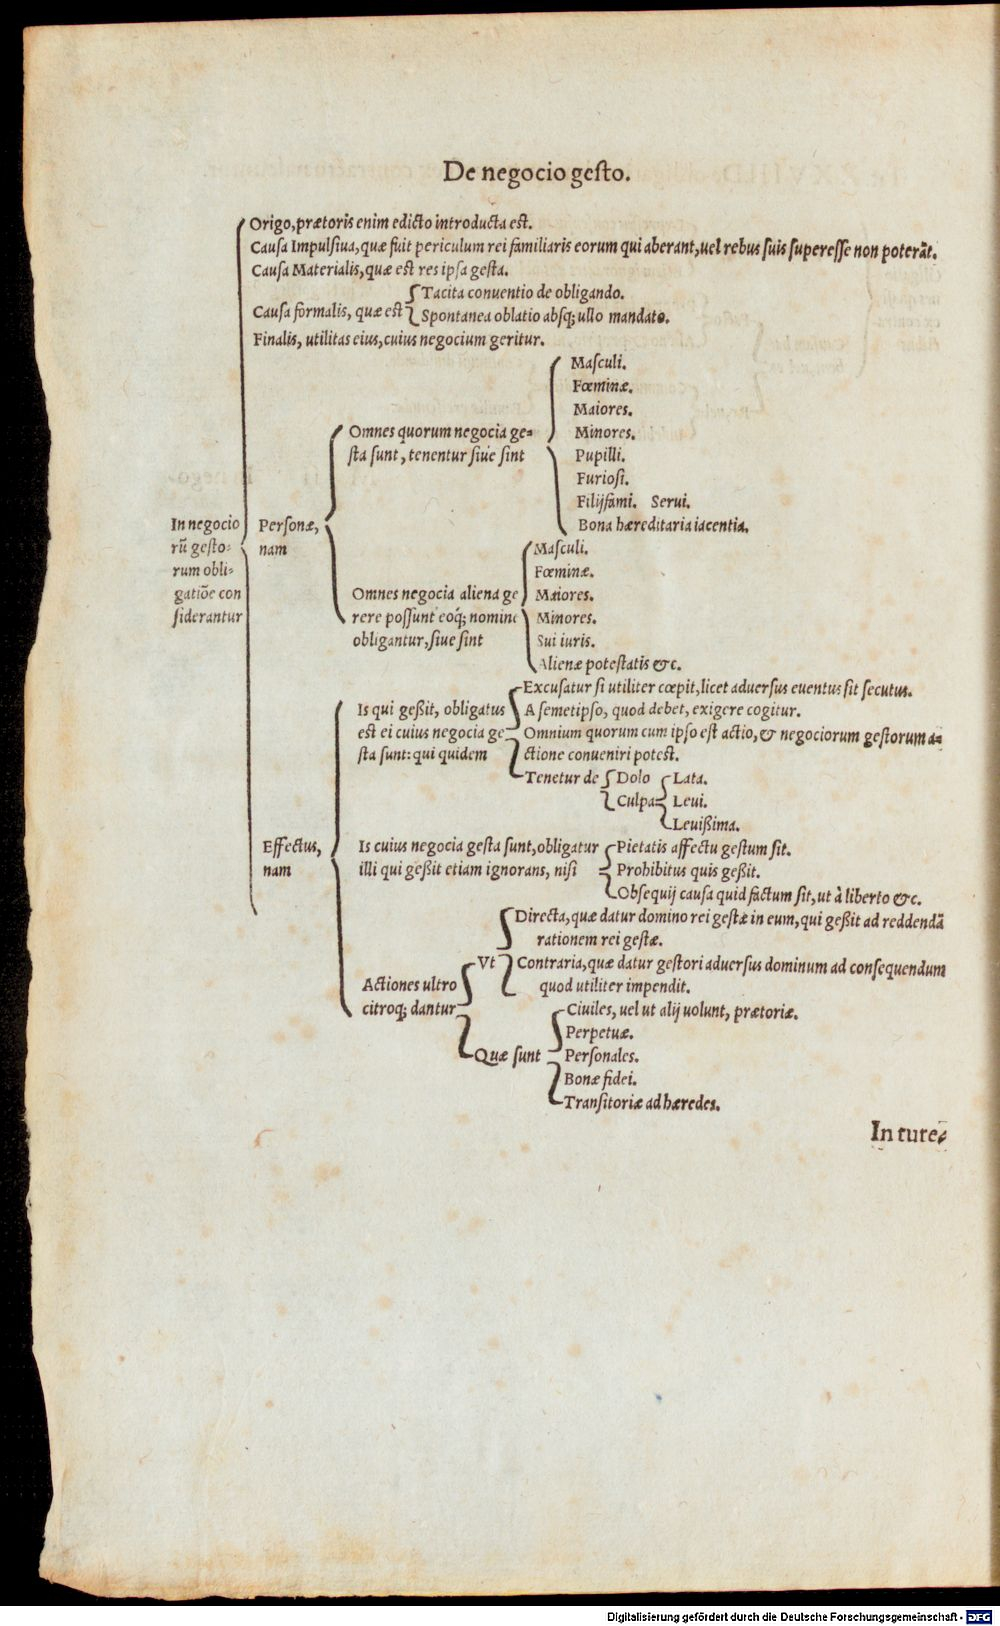 De negocio gesto.
Origo, prætoris enim edicto introducta est.
Causa Impulsiua, quæ fuit periculum rei familiaris eorum qui aberant, uel rebus suis superesse non poterāt.
Causa Materialis, quæ est res ipsa gesta.
Causa formalis, quæ est
Tacita conuentio de obligando.
Spontanea oblatio absq; ullo mandato.
Finalis, utilitas eius, cuius negocium geritur.
In negocio
rū gesto-
rum obli-
gatiōe con
siderantur
Personæ,
nam
Omnes quorum negocia ge-
sta sunt, tenentur siue sint
Masculi.
Fœminæ.
Maiores.
Minores.
Pupilli.
Furiosi.
Filijfami. Serui.
Bona hæreditaria iacentia.
Omnes negocia aliena ge
rere possunt eoq́; nomine
obligantur, siue sint
Masculi.
Fœminæ.
Maiores.
Minores.
Sui iuris.
Alienæ potestatis &c.
Effectus,
nam
Is qui geßit, obligatus
est ei cuius negocia ge-
sta sunt: qui quidem
Excusatur si utiliter cœpit, licet aduersus euentus sit secutus.
A semetipso, quod debet, exigere cogitur.
Omnium quorum cum ipso est actio, & negociorum gestorum a-
ctione conueniri potest.
Tenetur de
Dolo
Culpa
Lata.
Leui.
Leuißima.
Is cuius negocia gesta sunt, obligatur
illi qui geßit etiam ignorans, nisi
Pietatis affectu gestum sit.
Prohibitus quis geßit.
Obsequij causa quid factum sit, ut à liberto &c.
Actiones ultro
citroq; dantur
Vt
Directa, quæ datur domino rei gestæ in eum, qui geßit ad reddendā
rationem rei gestæ.
Contraria, quæ datur gestori aduersus dominum ad consequendum
quod utiliter impendit.
Quæ sunt
Ciuiles, uel ut alij uolunt, prætoriæ.
Perpetuæ.
Personales.
Bonæ fidei.
Transitoriæ ad hæredes.
In tute-
Digitalisierung gefördert durch die Deutsche Forschungsgemeinschaft - DFG